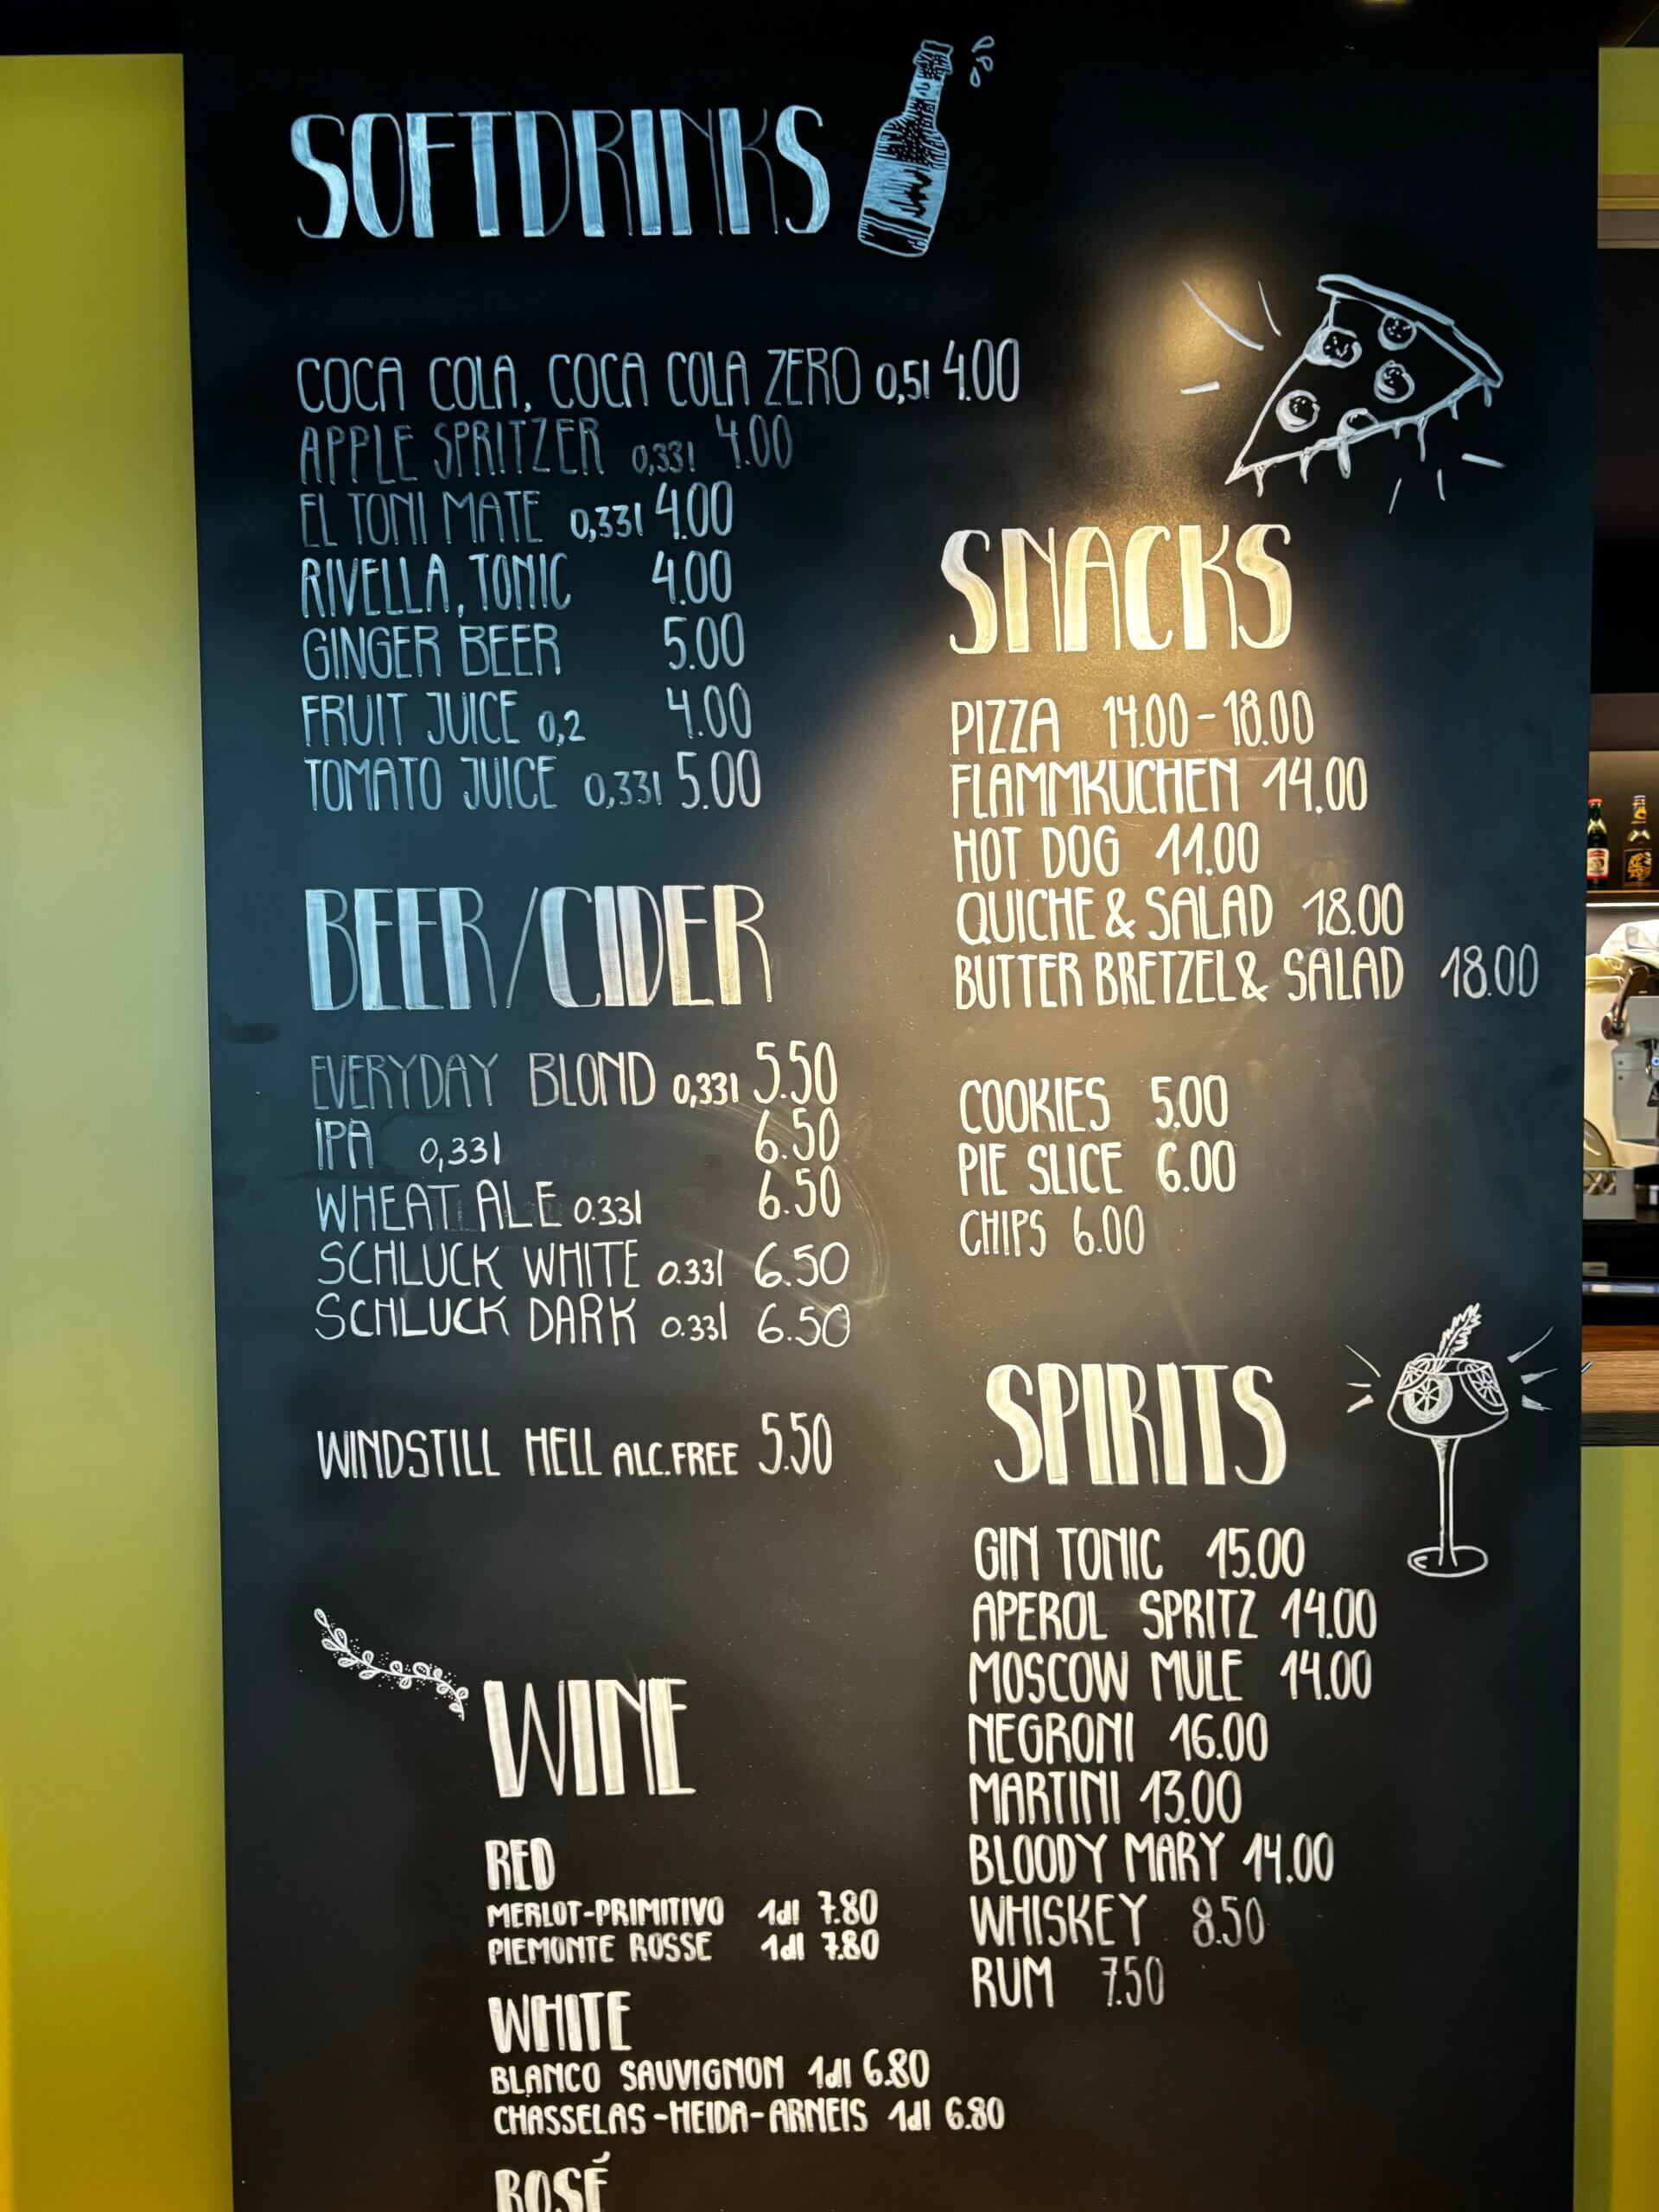 SOFTDRINKS
COCA COLA, COCA COLA ZERO 0,5l 4.00
APPLE SPRITZER 0,33l 4.00
EL TONI MATE 0,33l 4.00
RIVELLA, TONIC 4.00
GINGER BEER 5.00
FRUIT JUICE 0,2 4.00
TOMATO JUICE 0,33l 5.00
BEER/CIDER
EVERYDAY BLOND 0,33l 5.50
IPA 0,33l 6.50
WHEAT ALE 0.33l 6.50
SCHLUCK WHITE 0.33l 6.50
SCHLUCK DARK 0.33l 6.50
WINDSTILL HELL ALC.FREE 5.50
WINE
RED
MERLOT-PRIMITIVO 1dl 7.80
PIEMONTE ROSSE 1dl 7.80
WHITE
BLANCO SAUVIGNON 1dl 6.80
CHASSELAS-HEIDA-ARNEIS 1dl 6.80
ROSÉ
SNACKS
PIZZA 14.00-18.00
FLAMMKUCHEN 14.00
HOT DOG 11.00
QUICHE & SALAD 18.00
BUTTER BRETZEL & SALAD 18.00
COOKIES 5.00
PIE SLICE 6.00
CHIPS 6.00
SPIRITS
GIN TONIC 15.00
APEROL SPRITZ 14.00
MOSCOW MULE 14.00
NEGRONI 16.00
MARTINI 13.00
BLOODY MARY 14.00
WHISKEY 8.50
RUM 7.50